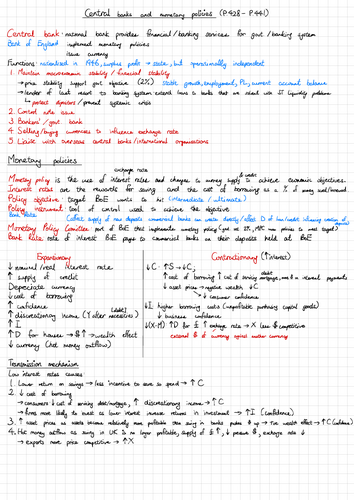 Central banks and monetary policies (P428 - P441)
Central bank: national bank provides financial/banking services for govt/banking system
Bank of England implement monetary policies
issue currency
Functions: nationalised in 1946, surplus profit → state, but operationally independent
1. Maintain macroeconomic stability / financial stability
→ price stability support govt objective (2%) stable growth, employment, PL, current account balance
→ lender of last resort to banking system extend loans to banks that are illiquid liquidity problem
↳ protect depositors / prevent systemic crisis
2. Control note issue
3. Bankers' / govt bank
4. Selling/buying currencies to influence exchange rate
5. Liaise with overseas central banks/international organisations
Monetary policies
exchange rate
& credit
Monetary policy is the use of interest rates and changes to money supply to achieve economic objectives.
Interest rates are the rewards for saving and the cost of borrowing as a % of money saved/borrowed.
Policy objective: target BoE wants to hit (intermediate / ultimate)
Policy instrument: tool of control used to achieve the objective
Bank Rate
Monetary Policy Committee: part of BoE that implements monetary policy
Bank Rate: rate of interest BoE pays to commercial banks on their deposits held at BoE
Expansionary
↓ nominal/real interest rate
↑ supply of credit
Depreciate currency
↓ cost of borrowing
↑ confidence
(debt)
↑ discretionary income (Y after necessities)
↑ I
↑ D for houses → $↑ → wealth effect
↓ currency (hot money outflow)
Contractionary (↑ interest)
↓C ↑S → ↓C,
debt
↑ cost of borrowing ↑ cost of servicing mortgage, more $ in interest payments
↓ asset price → negative wealth ↓C
↳ ↓ consumer confidence
↓I higher borrowing costs (unprofitable purchasing capital goods)
↓ business confidence
↓(X-M) ↑D for £ ↑ exchange rate → X less $ competitive
external $ of currency against another currency
Transmission mechanism
Low interest rates causes:
1. Lower return on savings → less incentive to save so spend → ↑C
2. ↓ cost of borrowing
→ consumers ↓ cost of servicing debt/mortgage, ↑ discretionary income → ↑C
→ firms more likely to invest as lower interest increase returns in investment → ↑I (confidence)
3. ↑ Asset prices as assets become relatively more profitable than saving in banks pushes $ up → +ve wealth effect → ↑C (confidence)
4. Hot money outflow as saving in UK is no longer profitable, supply of £↑, ↓ pounds $, exchange rate ↓
→ exports more price competitive → ↑X